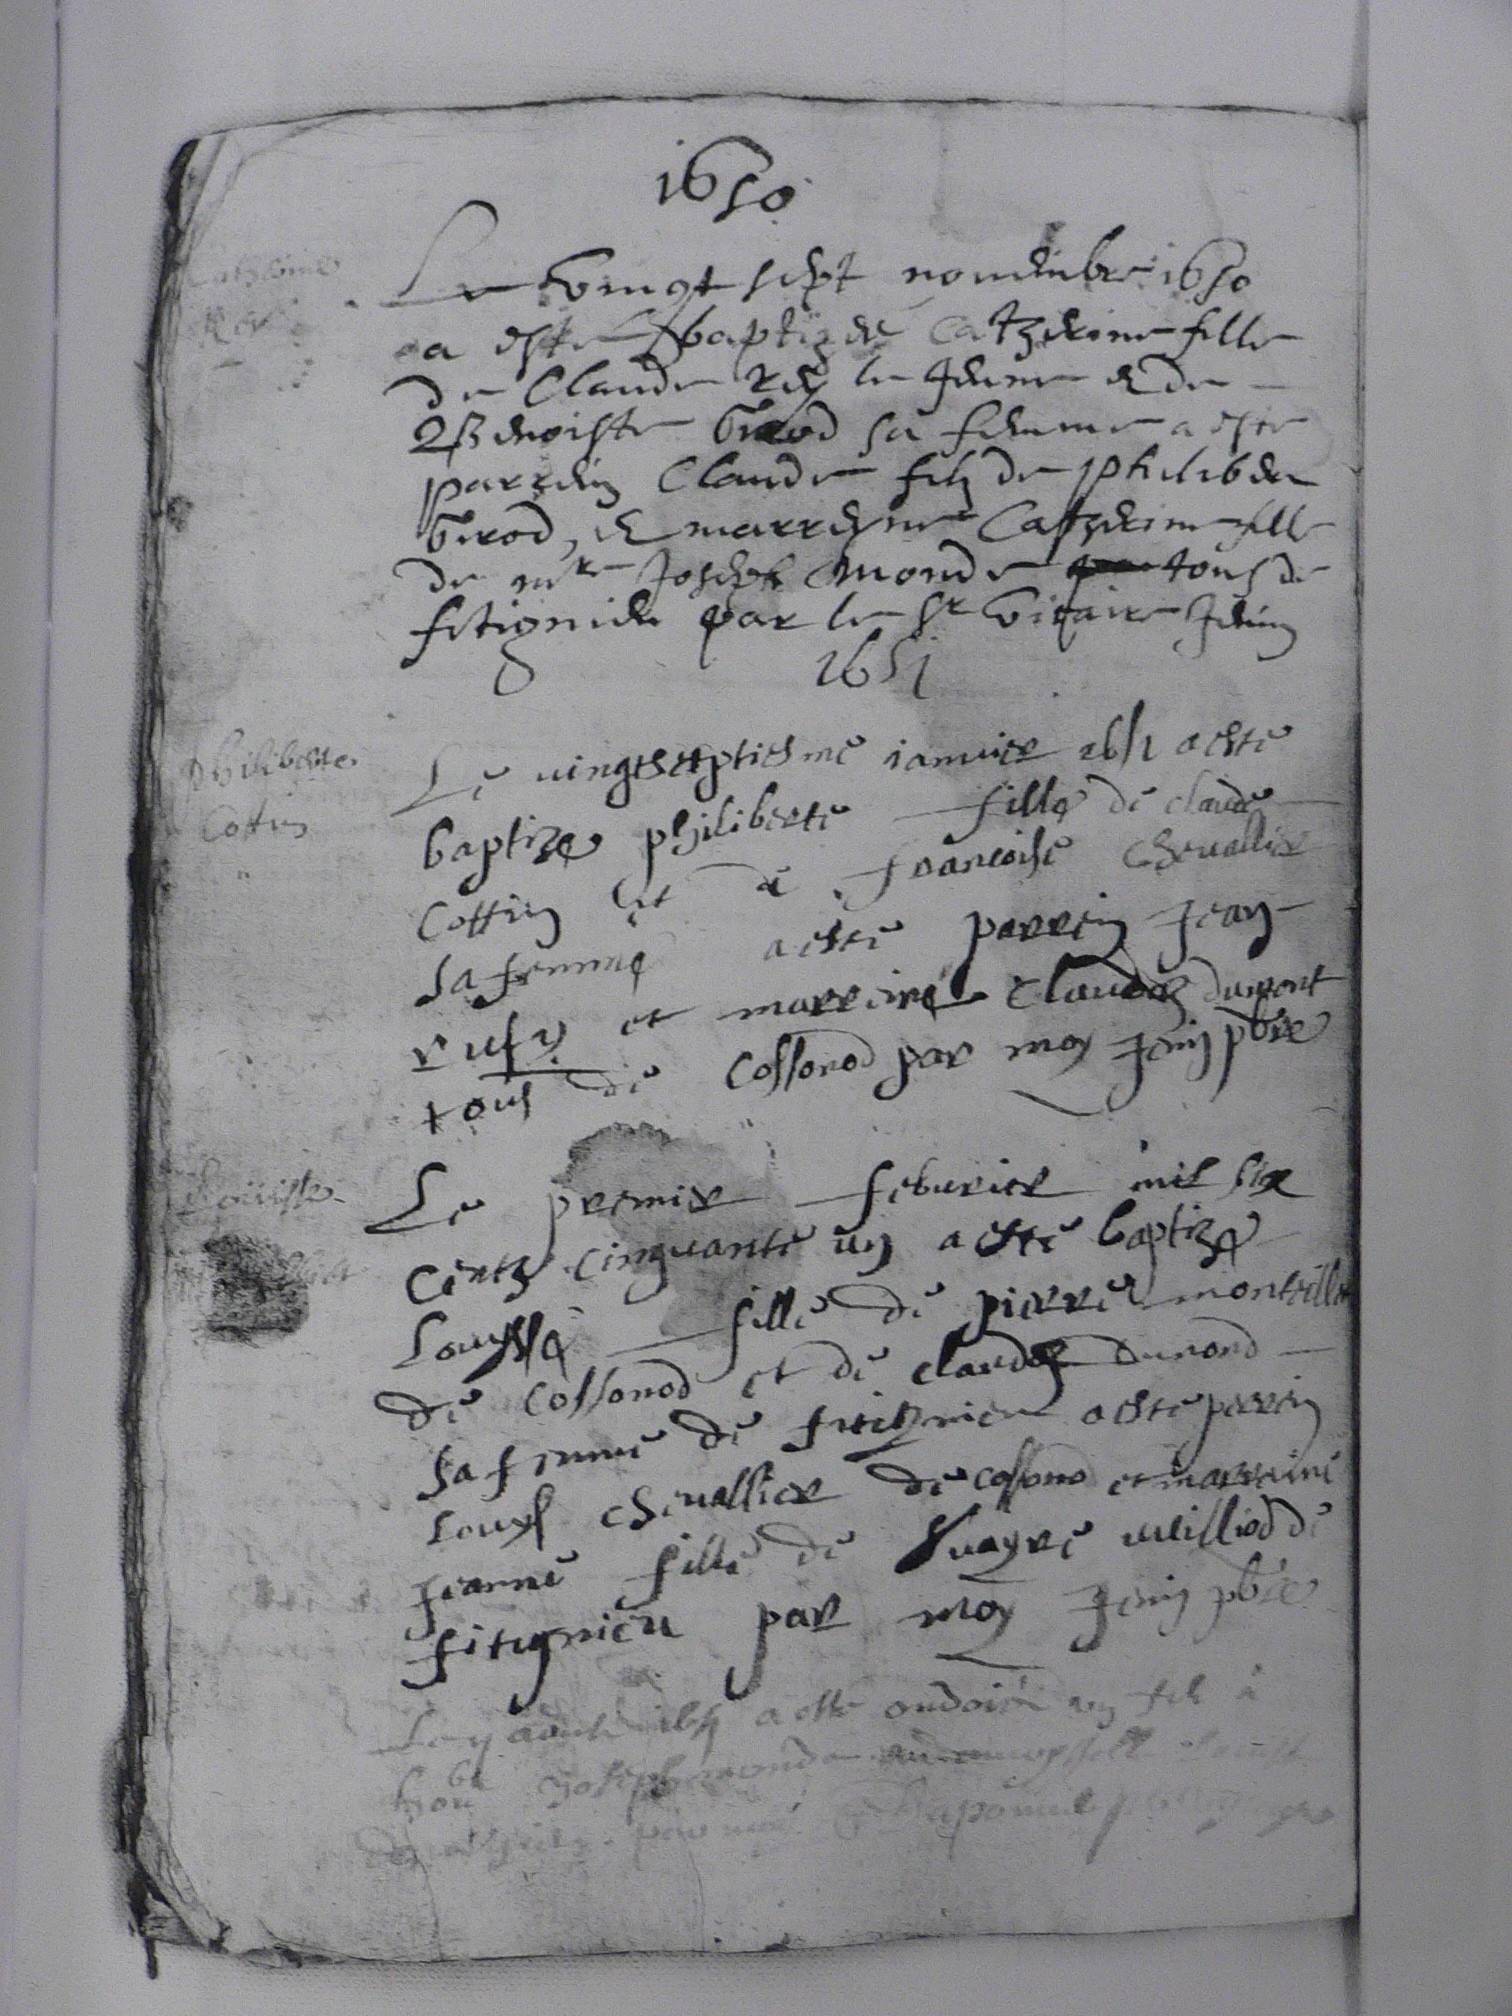 1650
Catherine
Rey
Le vingt sept novembre 1650
a este baptizee Catherine fille
de Claude Rey le Jeune et de
Benoiste Girod sa femme a este
parrein Claude filz de philiber
Girod, et marreyne Catherine fille
de mre Joseph Monde tous de
fitignieu par le Sr vicaire Jenin
1651
philiberte
Cottin
Le vingtseptiesme ianvier 1651 a este
baptize philiberte fille de claude
Cottin et de francoise chevallier
sa femme a este parrein Jean
rufy et marreine Claudaz dumont
tous de Cossonod par moy Jenin pbre
Louisse
Le premier feburier mil six
centz cinquante un a este baptize
Louysse fille de pierre montillet
de Cossonod et de claudaz dumond
sa femme de fitignieu a este parrein
Louys chevallier de cossono et marreine
Jeanne fille de
fitignieu par moy Jenin pbre
a esté ondoié un fils à
hon Joseph monde
par moi